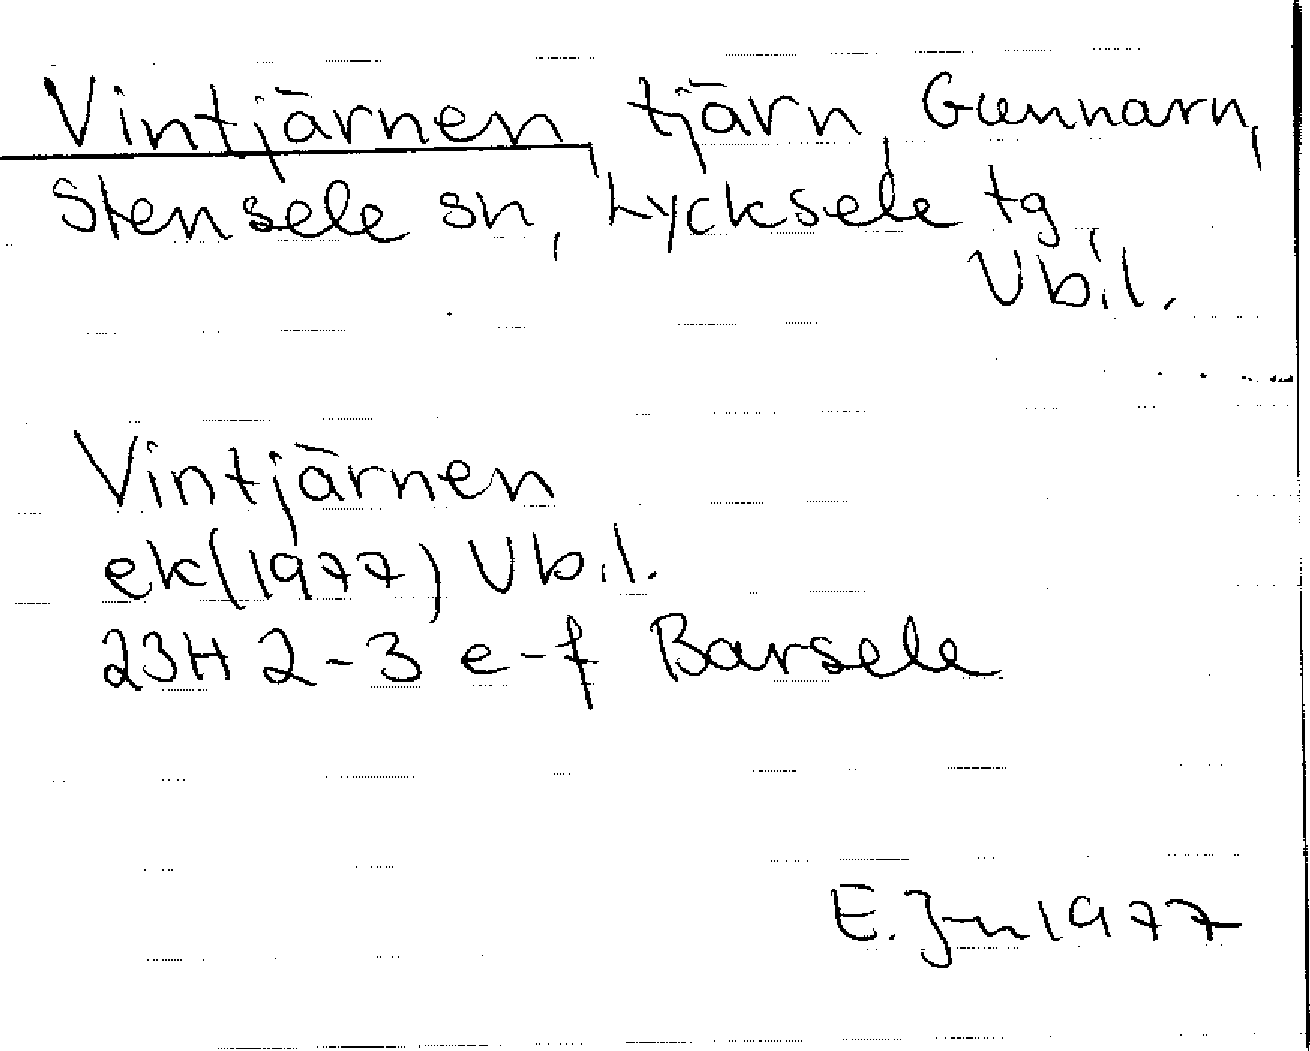 Vintjärnen, tjärn, Gunnarn,
Stensele sn, Lycksele tg,
Vb.l.
Vintjärnen
ek(1977) Vb.l.
23H 2-3 e-f Barsele
E. J-n 1977